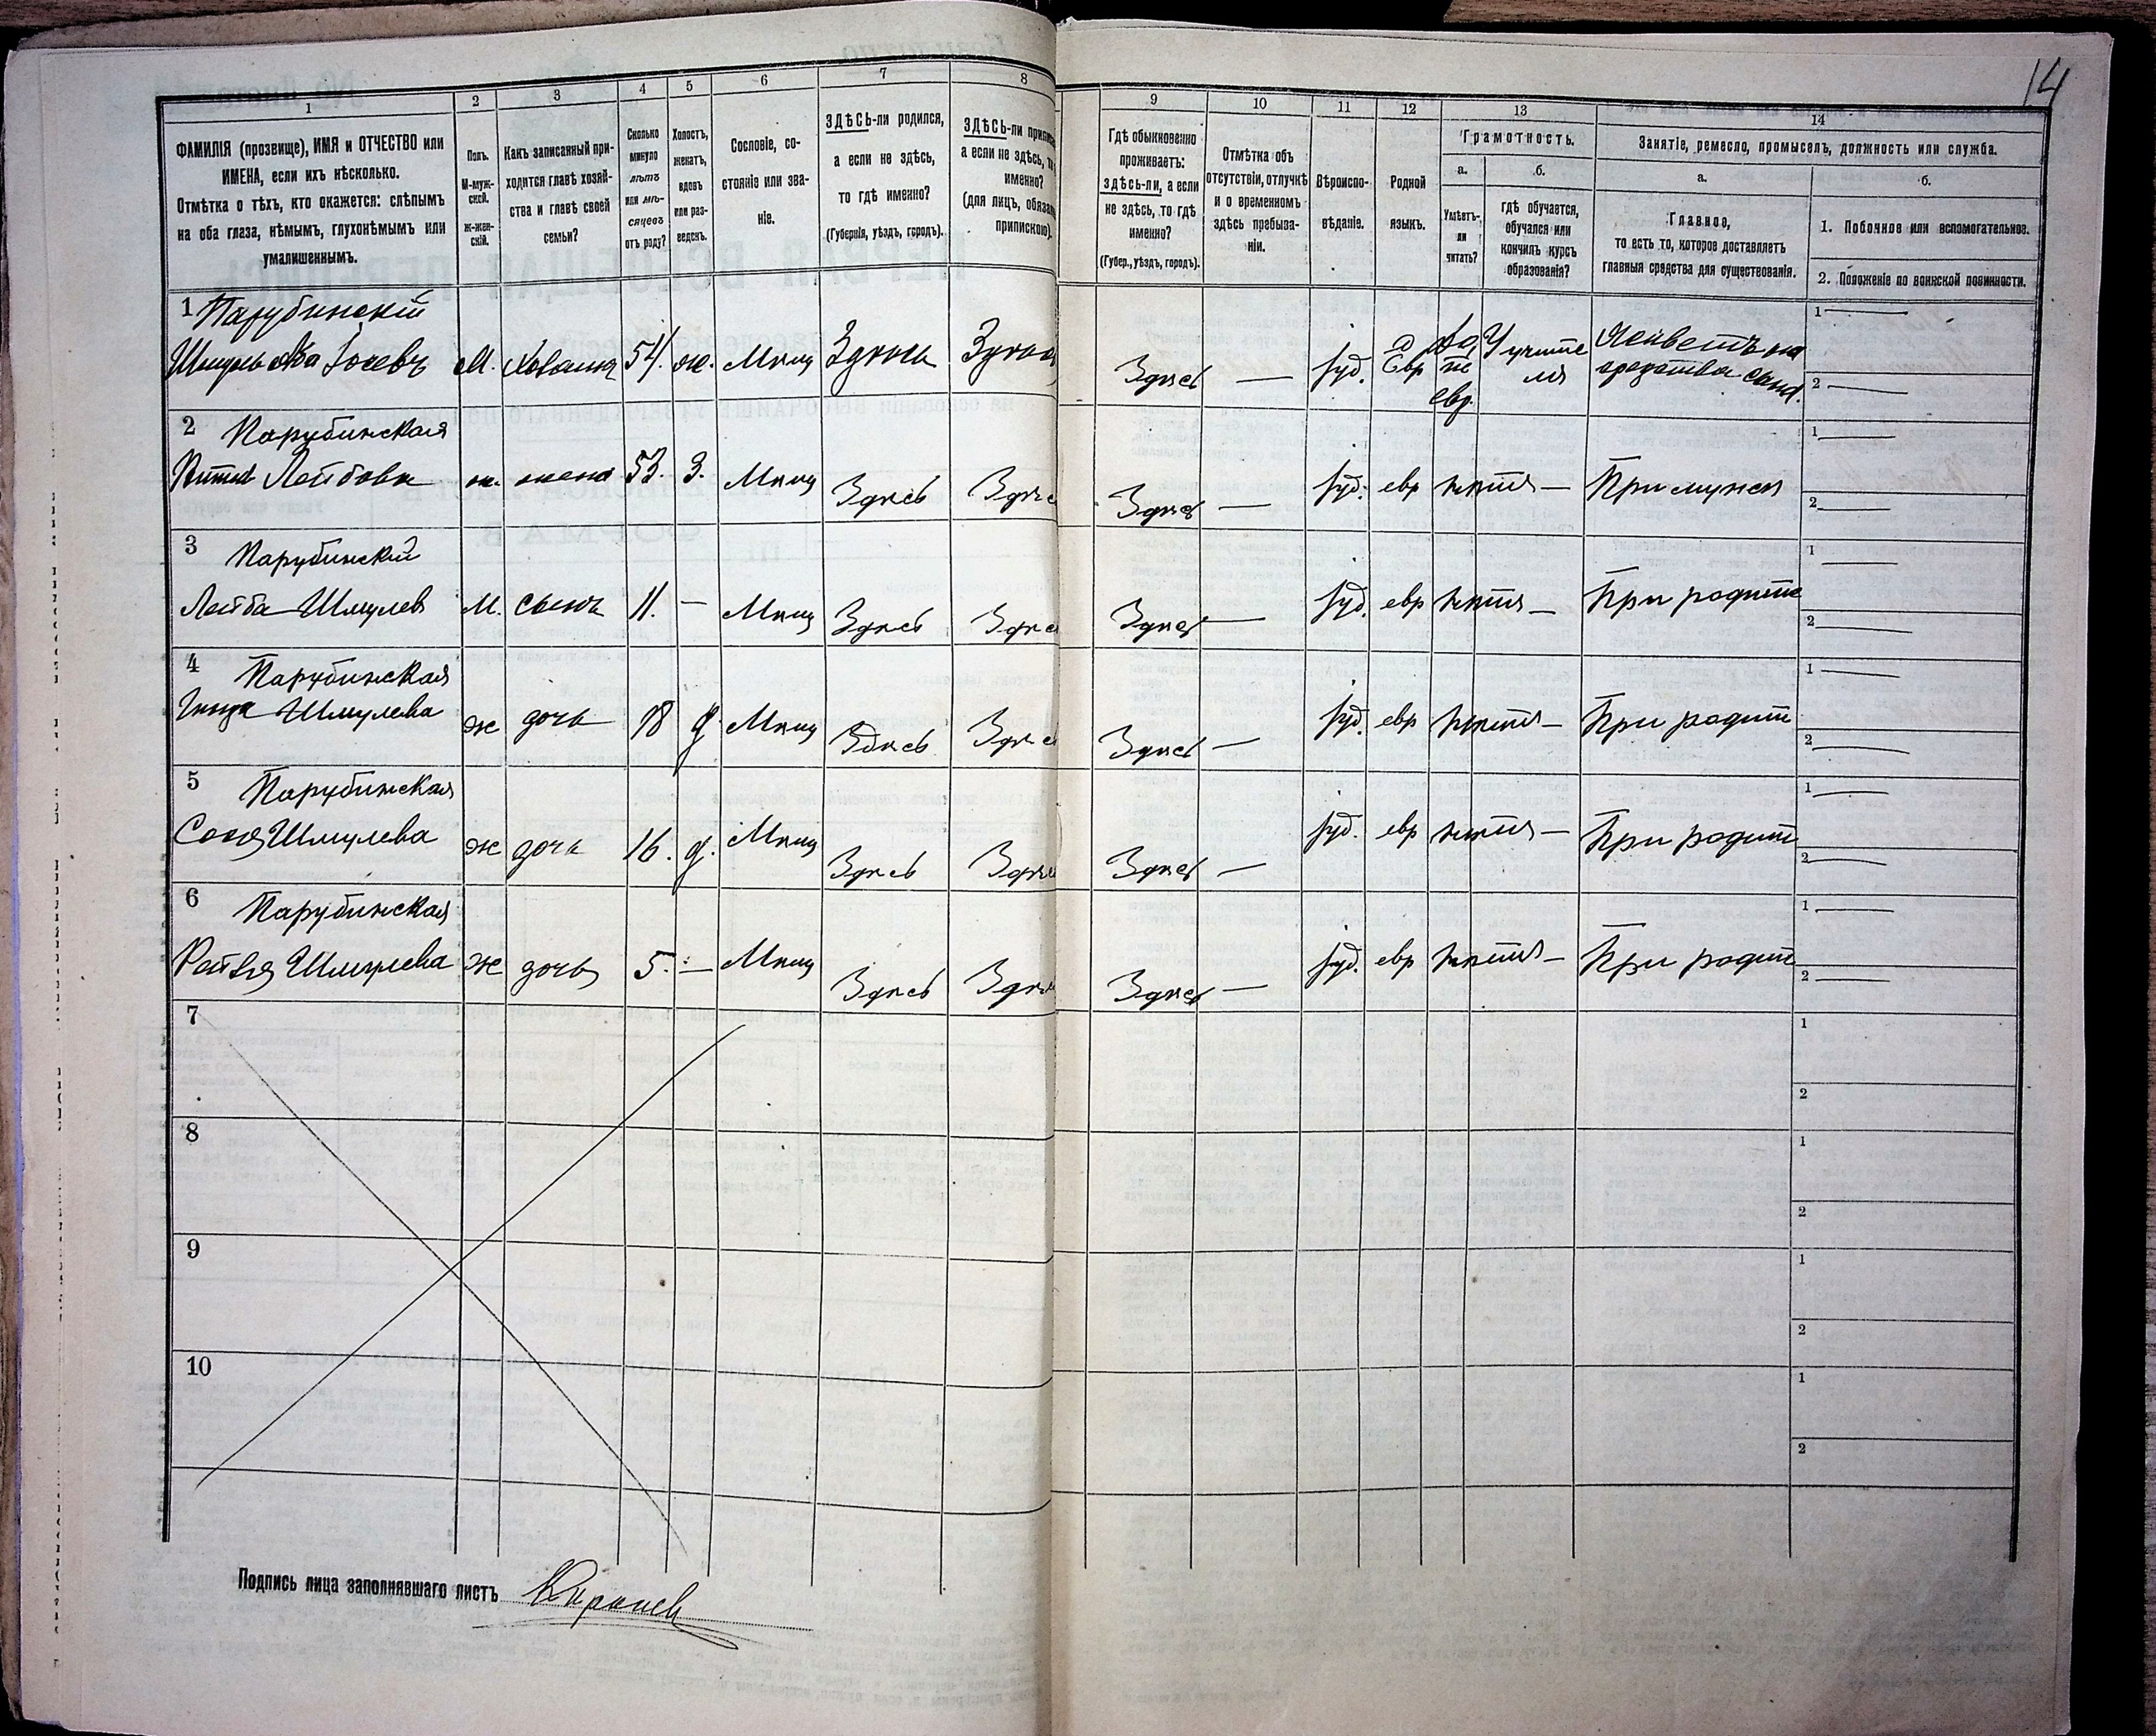 14
1
2
3
4
5
6
7
8
9
10
11
12
13
14
ФАМИЛІЯ (прозвище), ИМЯ и ОТЧЕСТВО или
ИМЕНА, если ихъ нѣсколько.
Отмѣтка о тѣхъ, кто окажется: слѣпымъ
на оба глаза, нѣмымъ, глухонѣмымъ или
умалишеннымъ.
Полъ.
М-муж-
ской.
ж-жен-
скій.
Какъ записанный при-
ходится главѣ хозяй-
ства и главѣ своей
семьи?
Сколько
минуло
лѣтъ
или мѣ-
сяцевъ
отъ роду?
Холостъ,
женатъ,
вдовъ
или раз-
веденъ.
Сословіе, со-
стояніе или зва-
ніе.
ЗДѢСЬ-ли родился,
а если не здѣсь,
то гдѣ именно?
(Губернія, уѣздъ, городъ).
ЗДѢСЬ-ли
а если не здѣсь,
именно?
(для лицъ,
припискою).
Гдѣ обыкновенно
проживаетъ:
здѣсь-ли, а если
не здѣсь, то гдѣ
именно?
(Губер., уѣздъ, городъ).
Отмѣтка объ
отсутствіи, отлучкѣ
и о временномъ
здѣсь пребыва-
ніи.
Вѣроиспо-
вѣданіе.
Родной
языкъ.
Грамотность.
а.
Умѣетъ-
ли
читать?
б.
гдѣ обучается,
обучался или
кончилъ курсъ
образованія?
Занятіе, ремесло, промыселъ, должность или служба.
а.
Главное,
то есть то, которое доставляетъ
главныя средства для существованія.
б.
1. Побочное или вспомогательное.
2. Положеніе по воинской повинности.
1 Парубинскій
Шмуль Іосевъ М. Хозяинъ 54. ж. Мѣщ Здѣсь Здѣсь Здѣсь — Іуд. Евр Да евр. У учите ля
1 —
2 —
2 Парубинская
Лейбовна ж. жена 53. З. Мѣщ Здѣсь Здѣсь Здѣсь — Іуд. евр нѣтъ — При мужѣ
1 —
2 —
3 Парубинскій
Лейба Шмулев М. сынъ 11. — Мѣщ Здѣсь Здѣсь Здѣсь — Іуд. евр нѣтъ — При родите
1 —
2 —
4 Парубинская
Шмулева ж дочь 18 д. Мѣщ Здѣсь Здѣсь Здѣсь — Іуд. евр нѣтъ — При родит
1 —
2 —
5 Парубинская
Соня Шмулева ж дочь 16. д. Мѣщ Здѣсь Здѣсь Здѣсь — Іуд. евр нѣтъ — При родит
1 —
2 —
6 Парубинская
Шмулева ж дочь 5. — Мѣщ Здѣсь Здѣсь Здѣсь — Іуд. евр нѣтъ — При родит
1 —
2 —
7
1
2
8
1
2
9
1
2
10
1
2
Подпись лица заполнявшаго листъ